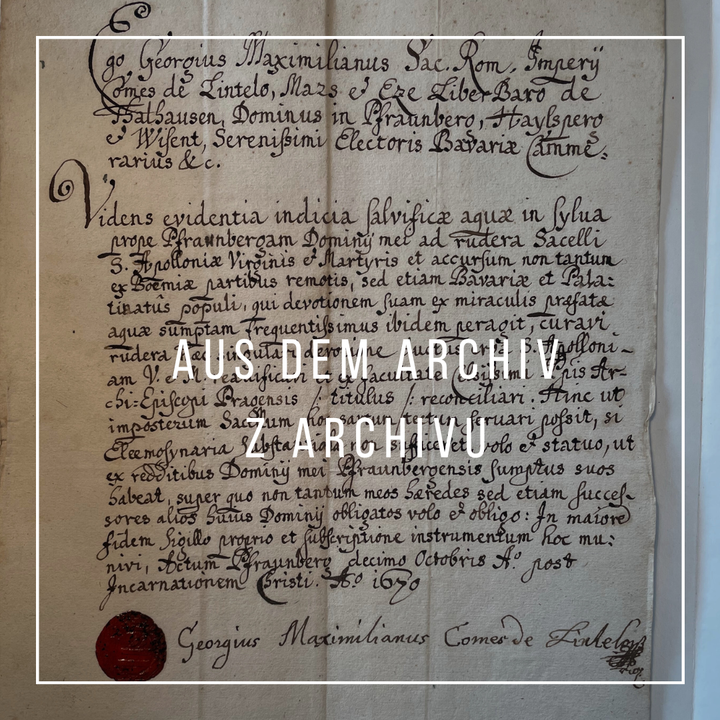 Ego Georgius Maximilianus Sac. Rom. Imperÿ
Comes de Lintelo, Mazs et Eze Liber Baro de
Walhausen, Dominus in Pfraunberg, Haÿlsperg
et Wisent, Serenißimi Electoris Bavariæ Camme,
rarius &c.
Videns evidentia indicia salvificæ aquæ in sylva
prope Pfraunbergam Dominÿ mei ad rudera Sacelli
S. Apolloniæ Virginis et Martyris et accursum non tantum
ex Boëmiæ partibus remotis, sed etiam Bavariæ et Pala-
tinatûs populi, qui devotionem suam ex miraculis præfatæ
aquæ sumptam frequentissimus ibidem peragit, curavi
rudera hæc singulari devotione S. Apolloni-
am V. et M. reædificari et ex facultate Ar-
chi-Episcopi Pragensis /: titulus :/ reconciliari. Hinc ut
imposterum Sacellum hoc sartum tectum servari possit, si
Eleemosynaria substantia non sufficeret volo et statuo, ut
ex redditibus Dominÿ mei Pfraunbergensis sumptus suos
habeat, super quo non tantum meos hæredes sed etiam succes-
sores alios huius Dominÿ obligatos volo et obligo: In maiore
fidem sigillo proprio et subscriptione instrumentum hoc mu:
nivi, Actum Pfraunberg decimo Octobris Aº post
Incarnationem Christi. Aº 1670
Georgius Maximilianus Comes de Lintelo
AUS DEM ARCHIV
Z ARCHIVU